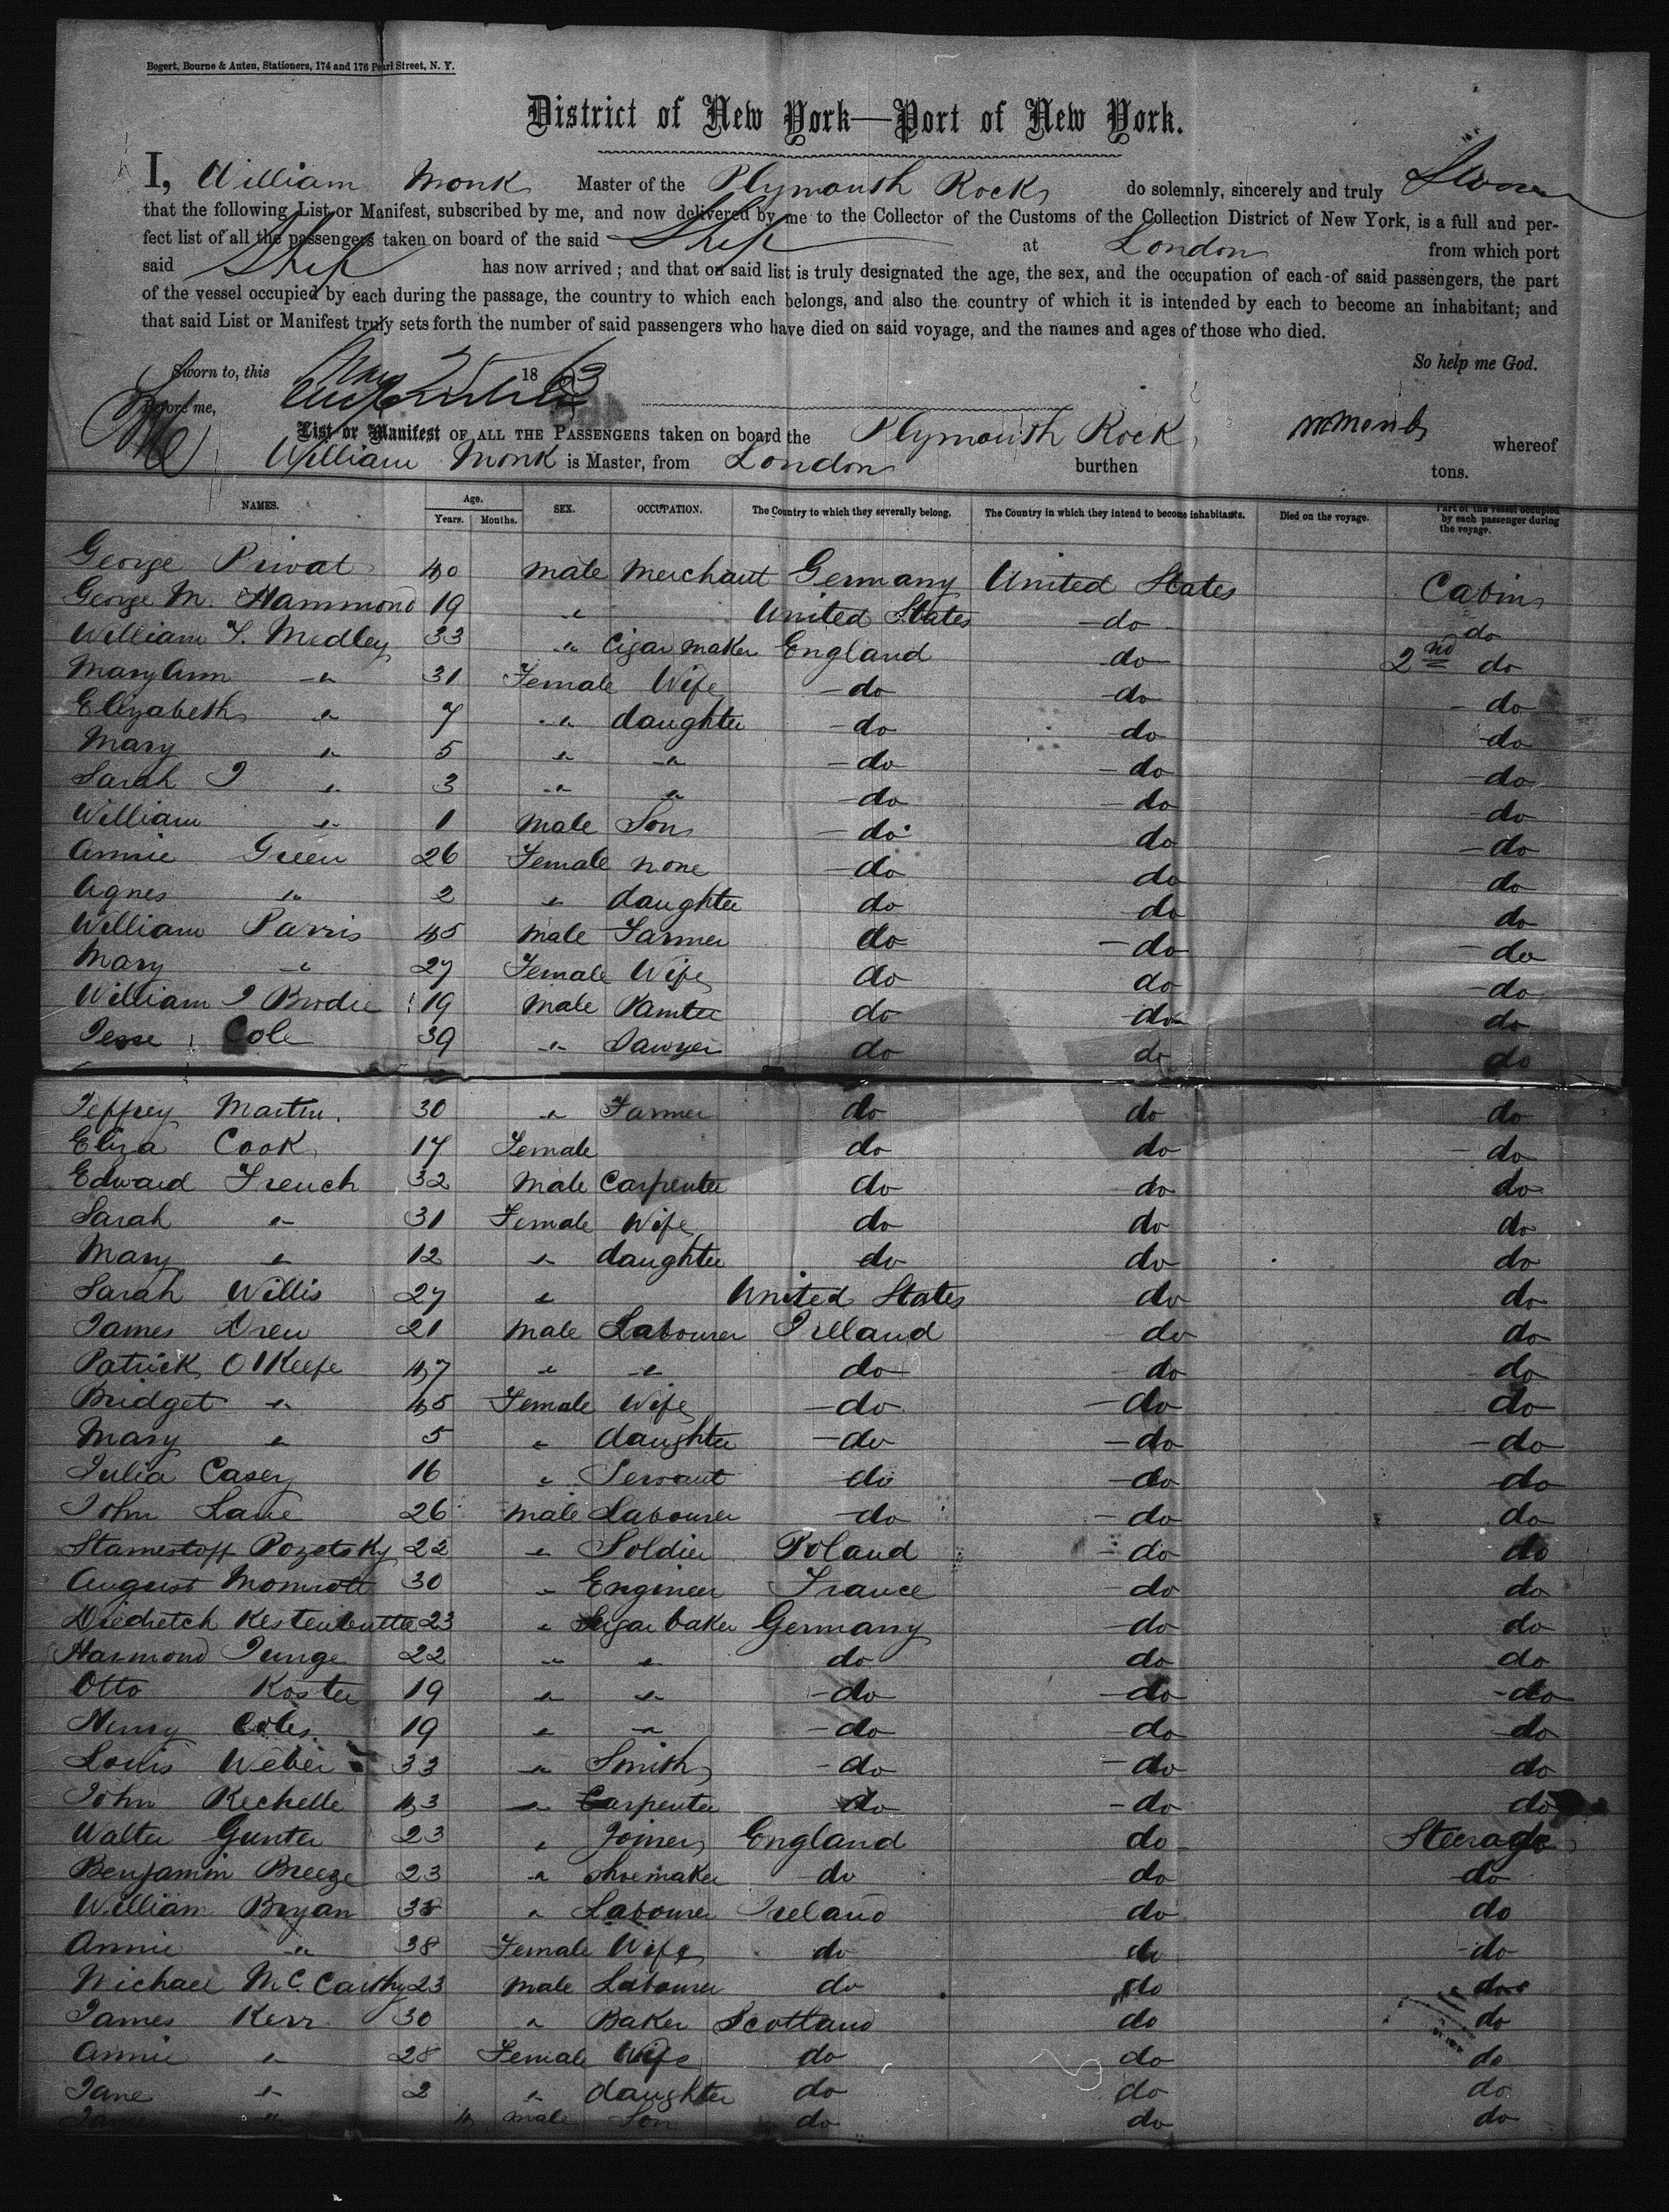 Bogert, Bourne & Auten, Stationers, 174 and 176 Pearl Street, N. Y.
District of New York—Port of New York.
I, William Monk Master of the Plymouth Rock do solemnly, sincerely and truly Swear
that the following List or Manifest, subscribed by me, and now delivered by me to the Collector of the Customs of the Collection District of New York, is a full and per-
fect list of all the passengers taken on board of the said Ship at London from which port
said Ship has now arrived; and that on said list is truly designated the age, the sex, and the occupation of each of said passengers, the part
of the vessel occupied by each during the passage, the country to which each belongs, and also the country of which it is intended by each to become an inhabitant; and
that said List or Manifest truly sets forth the number of said passengers who have died on said voyage, and the names and ages of those who died.
So help me God.
Sworn to, this 25 1863
Before me,
List or Manifest OF ALL THE PASSENGERS taken on board the Plymouth Rock whereof
William Monk is Master, from London burthen tons.
NAMES. Age. Years. Months. SEX. OCCUPATION. The Country to which they severally belong. The Country in which they intend to become inhabitants. Died on the voyage. Part of the vessel occupied by each passenger during the voyage.
George Privat 40 male Merchant Germany United States Cabin
George M. Hammond 19 " United States do do
William T. Medley 33 " Cigar maker England do 2nd do
Mary Ann " 31 Female Wife do do do
Elizabeth " 7 " daughter do do do
Mary " 5 " " do do do
Sarah J " 3 " " do do do
William " 1 male Son do do do
Annie Green 26 Female none do do do
Agnes " 2 " daughter do do do
William Parris 45 male Farmer do do do
Mary " 27 Female Wife do do do
William J Brodie 19 male Painter do do do
Jesse Cole 39 " Sawyer do do do
Jeffrey Martin 30 " Farmer do do do
Eliza Cook 17 Female do do do
Edward French 32 male Carpenter do do do
Sarah " 31 Female Wife do do do
Mary " 12 " daughter do do do
Sarah Willis 27 " United States do do
James Drew 21 male Labourer Irelland do do
Patrick O'Keefe 47 " " do do do
Bridget " 45 Female Wife do do do
Mary " 5 " daughter do do do
Julia Casey 16 " Servant do do do
John Lane 26 male Labourer do do do
Pozetsky 22 " Soldier Poland do do
August 30 " Engineer France do do
23 " Sugar baker Germany do do
Harmond Junge 22 " " do do do
Otto Koster 19 " " do do do
Henry Coles 19 " " do do do
Louis Weber 33 " Smith do do do
John Kechelle 43 " Carpenter do do do
Walter Gunter 23 " Joiner England do Steerage
Benjamin Breeze 23 " Shoemaker do do do
William Bryan 38 " Labourer Ireland do do
Annie " 38 Female Wife do do do
Michael McCarthy 23 male Labourer do do do
James Kerr 30 " Baker Scotland do do
Annie " 28 Female Wife do do do
Jane " 2 " daughter do do do
" 4 male Son do do do